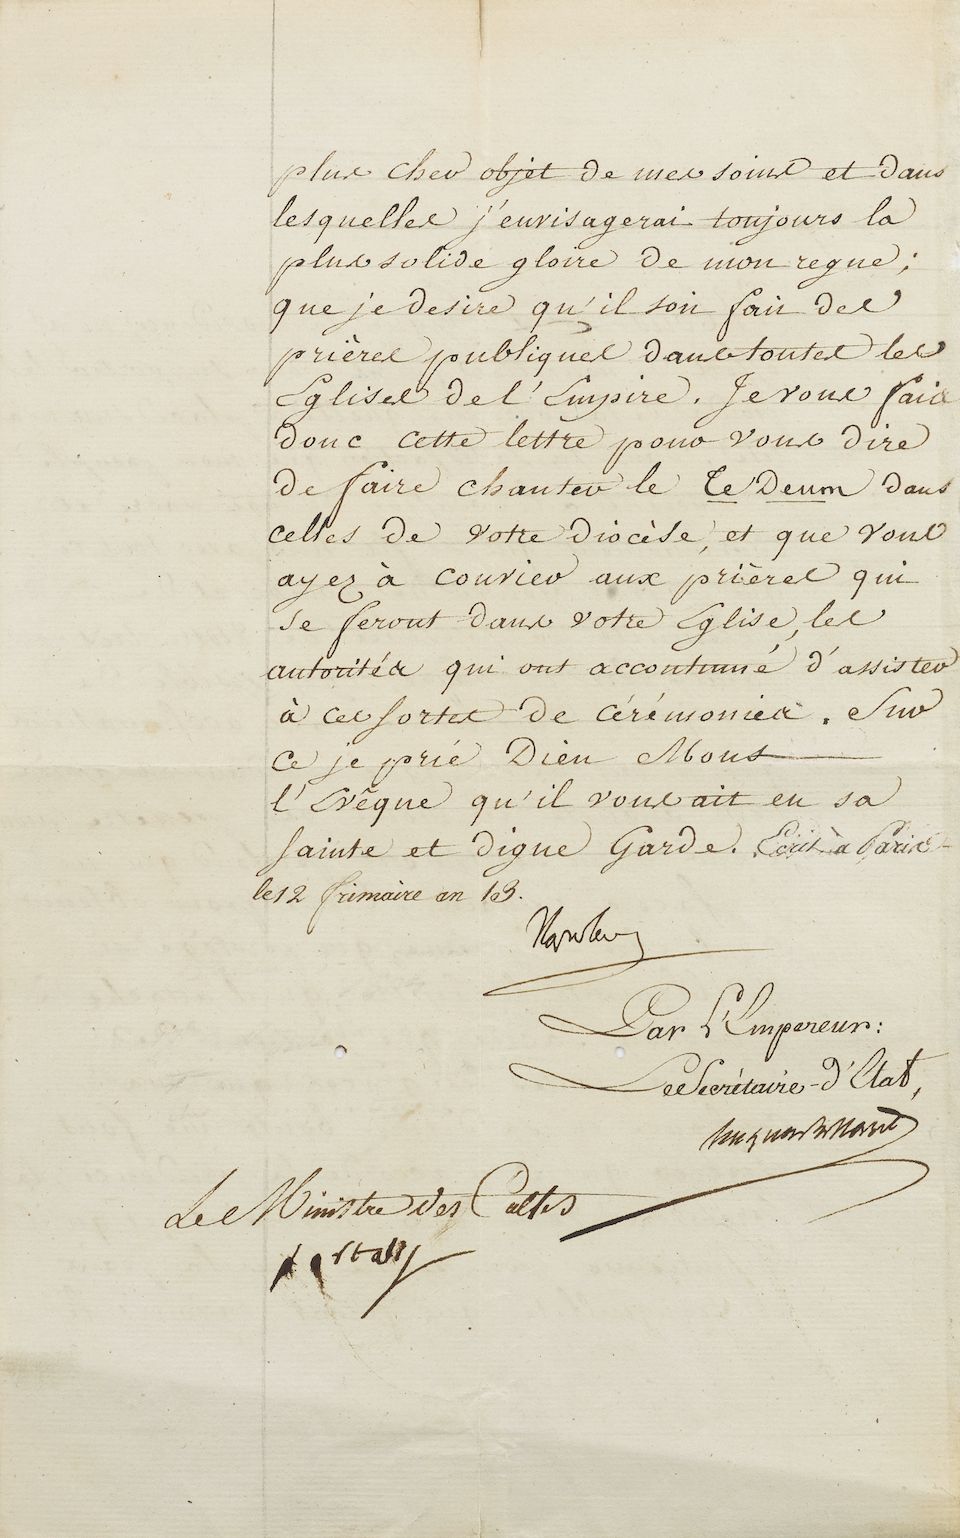 plus cher objet de mes soins et dans
lesquelles j'envisagerai toujours la
plus solide gloire de mon regne;
que je desire qu'il soit fait des
prières publiques dans toutes les
Eglises de l'Empire. Je vous fais
donc cette lettre pour vous dire
de faire chanter le Te Deum dans
celles de votre Diocèse, et que vous
ayez à convier aux prières qui
se feront dans votre Eglise, les
autorités qui ont accoutumé d'assister
à ces sortes de cérémonies. Sur
ce je prie Dieu Mons
l'Evêque qu'il vous ait en sa
sainte et digne Garde. Ecrit à Paris
le 12 frimaire an 13.
Napoleon
Par l'Empereur:
Le Secrétaire d'Etat,
hugues b. maret
Le Ministre des Cultes
Portalis